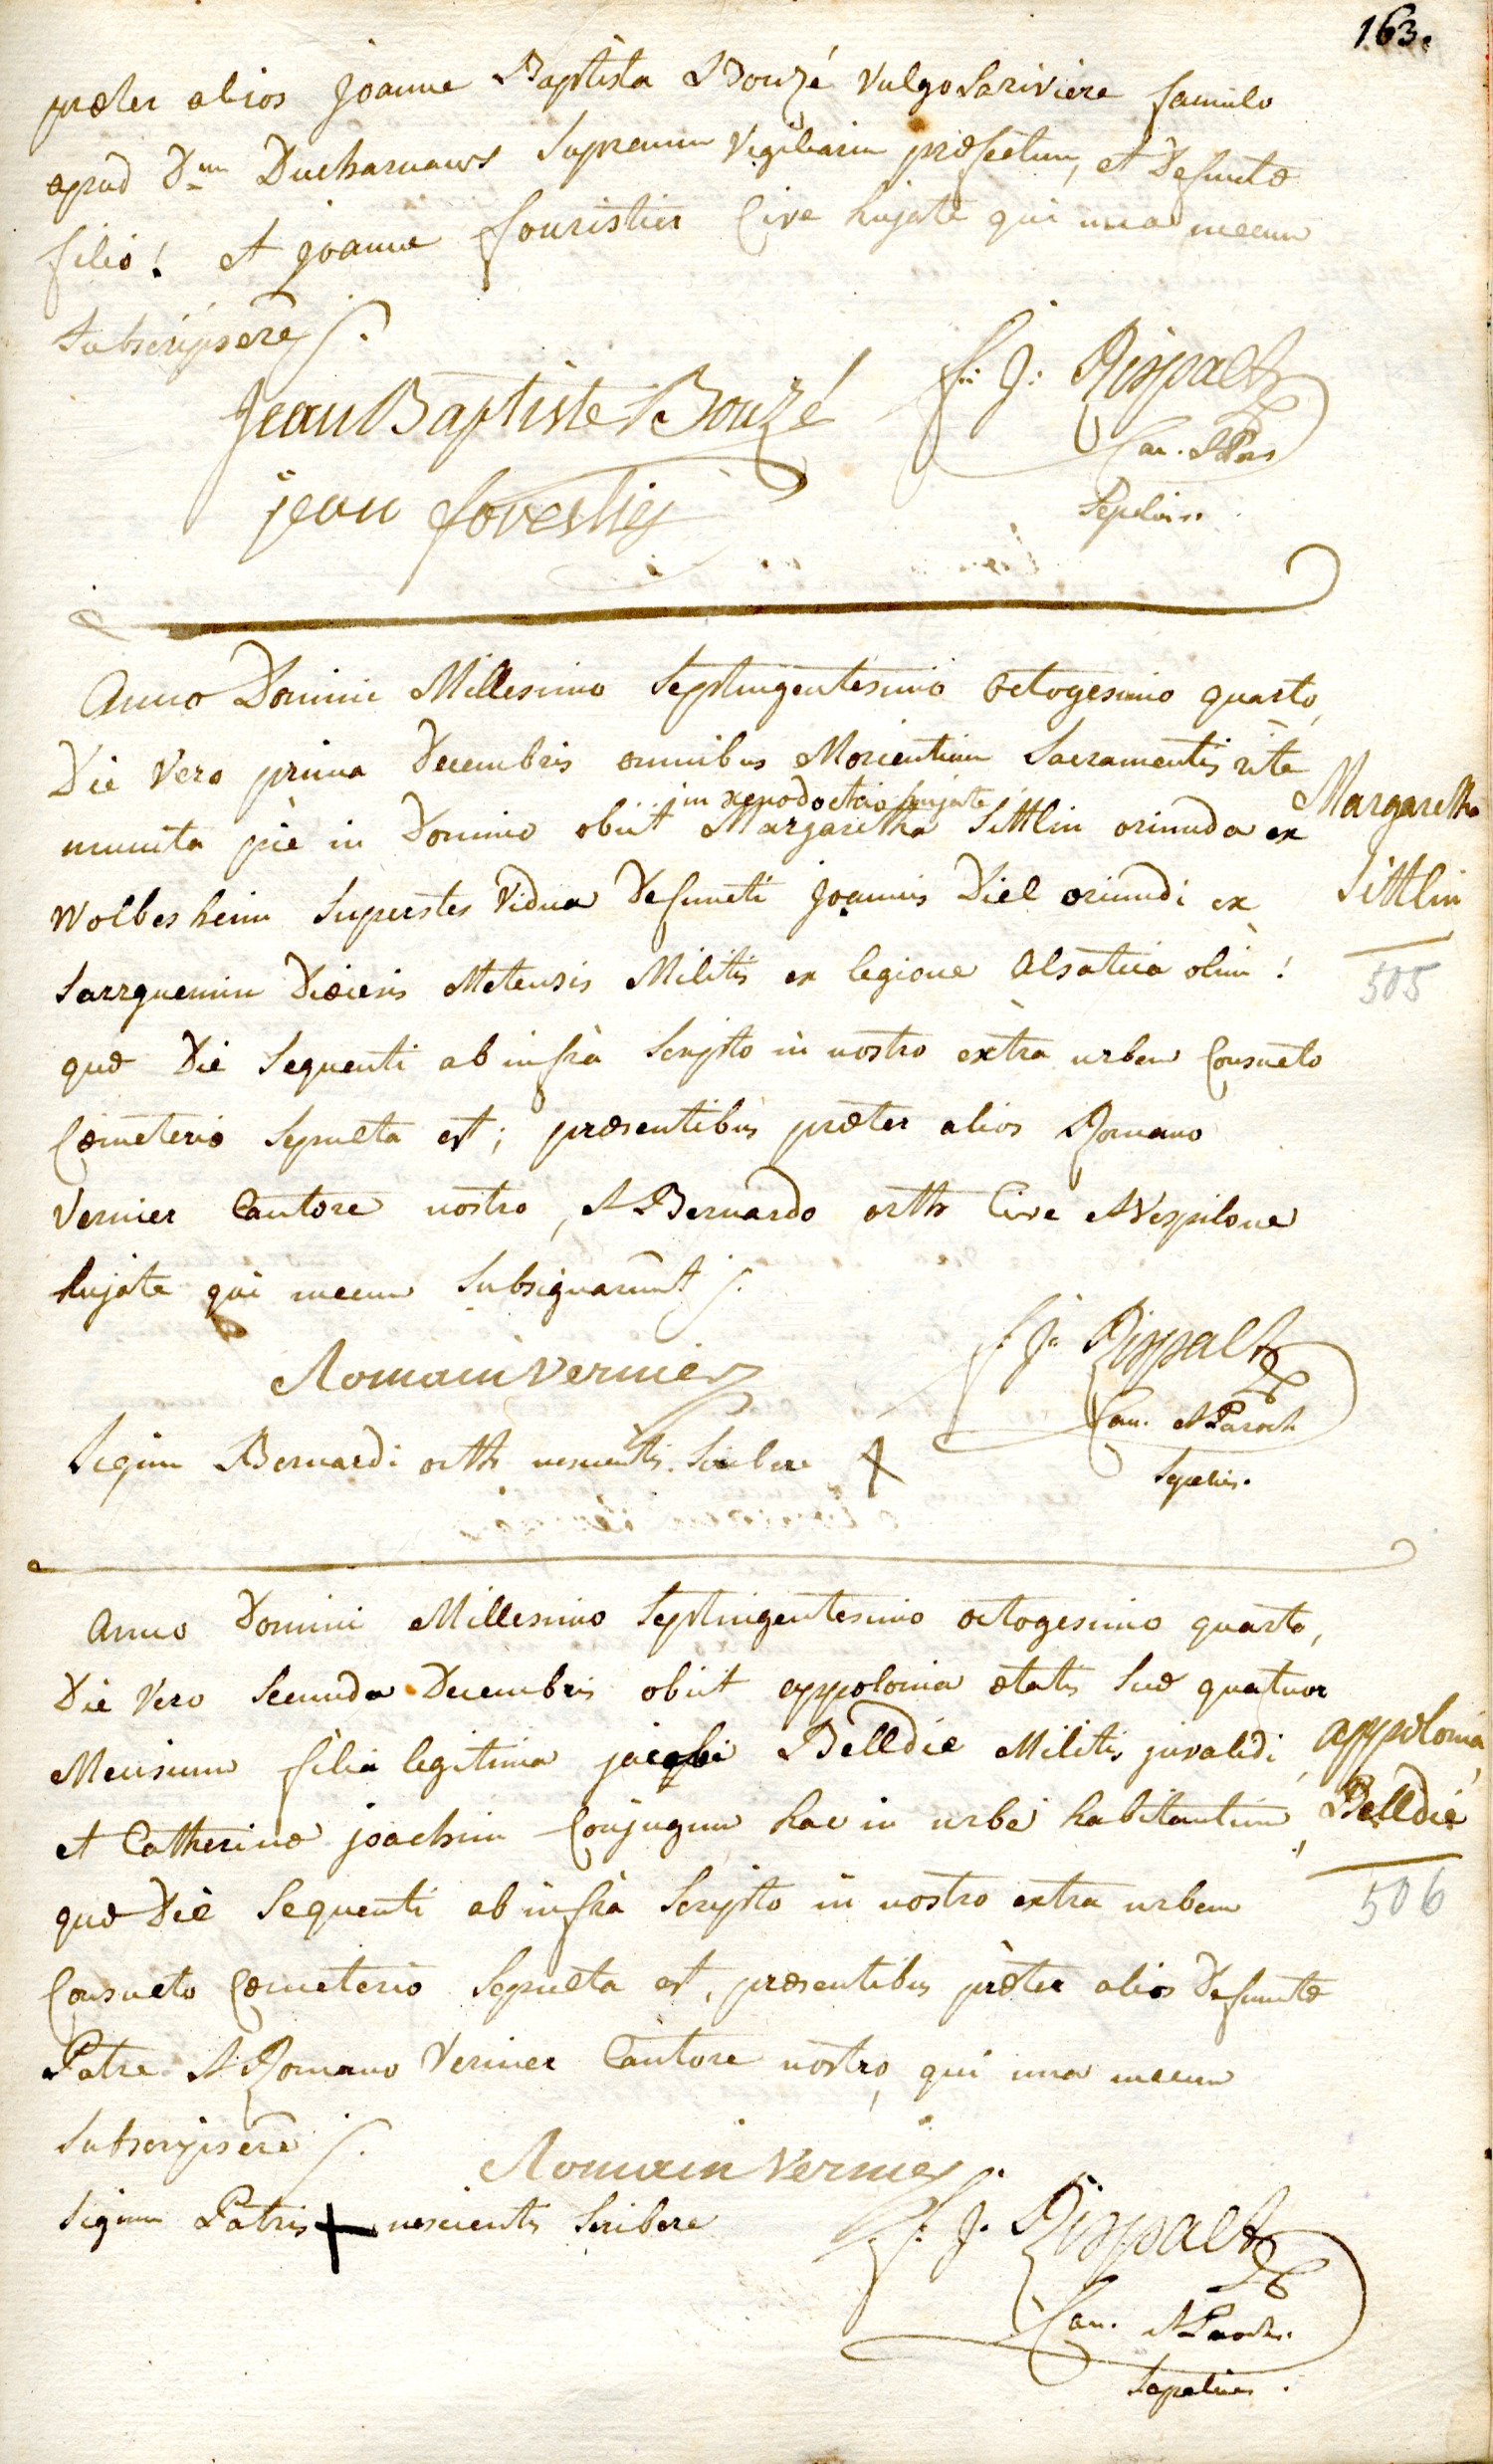 163.
præter alios Joanne Baptista Bouzé vulgo Lariviere famulo
apud Dnm Ducharnaws Supremum Vigiliarum præfectum, et Defunctæ
filio! et joanne fouristier Cive hujate qui una mecum
Subscripsere /.
Jean Baptiste Bouzé
f: J: Rispalt
Can. & Par.
jean forestie
Sepeliens.
Anno Domini Millesimo Septingentesimo octogesimo quarto,
Die Vero prima Decembris omnibus Morientium Sacramentis rite
in xenodochio hujate
munita piè in Domino obiit Margaretha Sittlin oriunda ex
Margaretha
Wolbesheim Superstes Vidua Defuncti Joannis Diel oriundi ex
Sittlin
Sarrguemin Diœcesis Metensis Militis ex legione Alsatica olim!
505
quæ Die Sequenti ab infrà Scripto in nostro extra urbem Consueto
Cœmeterio Sepulta est; præsentibus præter alios Romano
Vernier Cantore nostro, et Bernardo orth Cive et Vespilone
hujate qui mecum Subsignarunt /.
f. J. Rispalt
Romain Vernier
Can. et Paroch.
Signum Bernardi orth nescientis Scribere +
Sepeliens.
Anno Domini Millesimo Septingentesimo octogesimo quarto,
Die Vero Secunda Decembris obiit appolonia ætatis Suæ quatuor
Mensium filia legitima jacobi Belldie Militis invalidi
appolonia
et Catherinæ joachim Conjugum hac in urbe habitantium,
Belldie
quæ Die Sequenti ab infrà Scripto in nostro extra urbem
506
Consueto Cœmeterio Sepulta est, præsentibus præter alios Defunctæ
Patre et Romano Vernier Cantore nostro, qui una mecum
Subscripsere /.
Romain Vernier
Signum Patris + nescientis Scribere
f. J. Rispalt
Can. et Paroch.
Sepeliens.